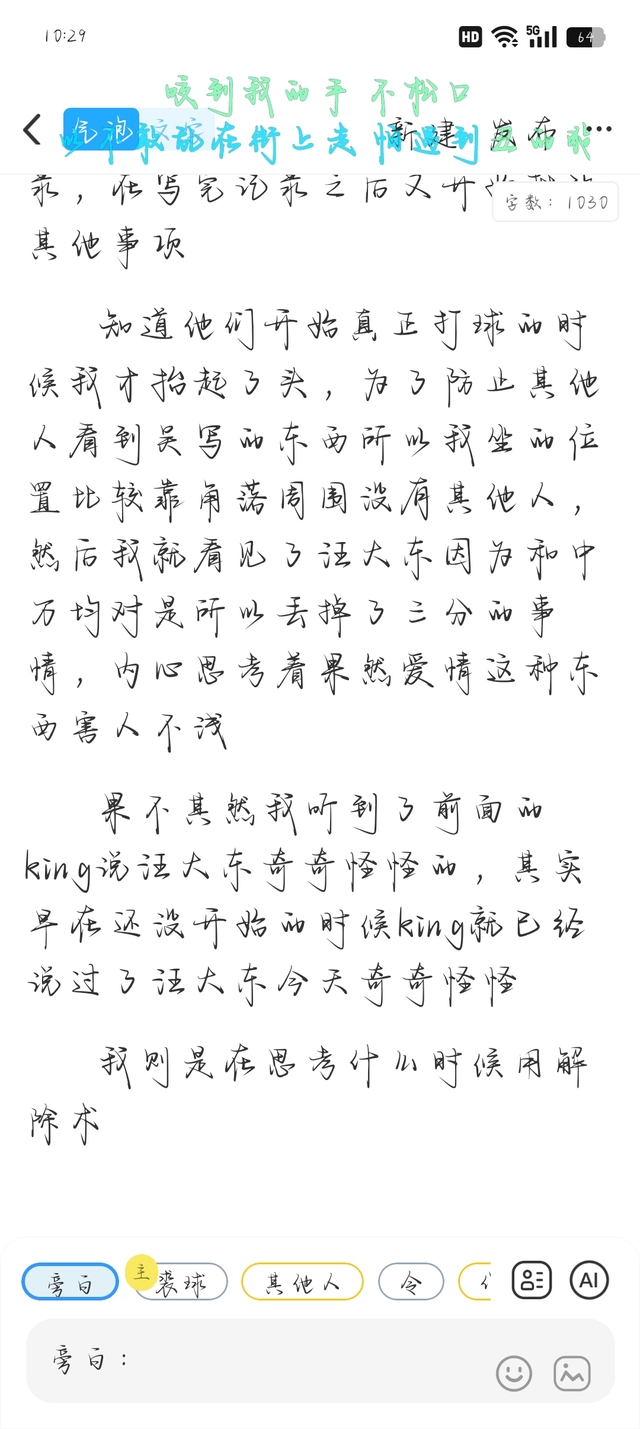 10:29
HD 5G 64
咬到我的手 不松口
气泡 文字 新建 发布 ...
以不敢能在街上走 怕遇到
字数：1030
录，在写完记录之后又开始
其他事项
知道他们开始真正打球的时
候我才抬起了头，为了防止其他
人看到吴写的东西所以我坐的位
置比较靠角落周围没有其他人，
然后我就看见了汪大东因为和中
万均对是所以丢掉了三分的事
情，内心思考着果然爱情这种东
西害人不浅
果不其然我听到了前面的
king说汪大东奇奇怪怪的，其实
早在还没开始的时候king就已经
说过了汪大东今天奇奇怪怪
我则是在思考什么时候用解
除术
旁白 主 裘球 其他人 令
AI
旁白：